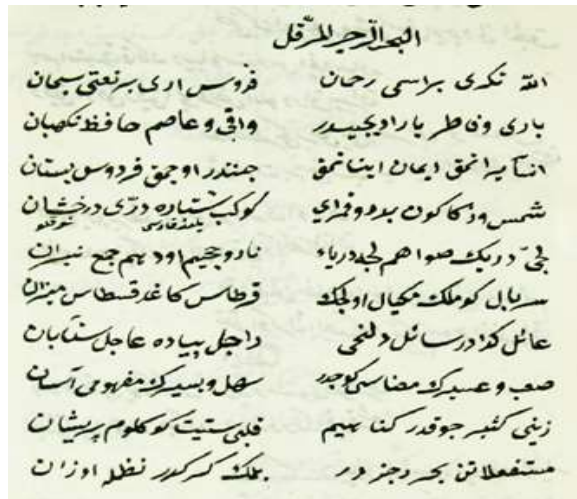 البحر الرجز المرفل
الله تكرى براسمى رحمان فردوس ارى بر نعتى سبحان
بارى وفاطر ياراديجيدر واقى وعاصم حافظ نكهبان
ايمان اينانمق جنتدر اوچمق فردوس بستان
شمس وذكا كون بدر وقمر اي كوكب ستاره درّى درخشان
يلدز فارسى
لجىّ دريك صو هم لجه درياء نار وجحيم اود هم جمع نيران
سربال كوملك مكيال اولچك قرطاس كاغد قسطاس ميزان
عائل كدادر سائل دلنجى راجل پياده عاجل شتابان
صعب وعسيرك معناسى كوجدر سهل ويسيرك مفهومى آسان
كثير چوقدر قلبى شتيت كوكلوم پريشان
مستفعلاتن بحر رجز در بلمك كركدر نظمله اوزان